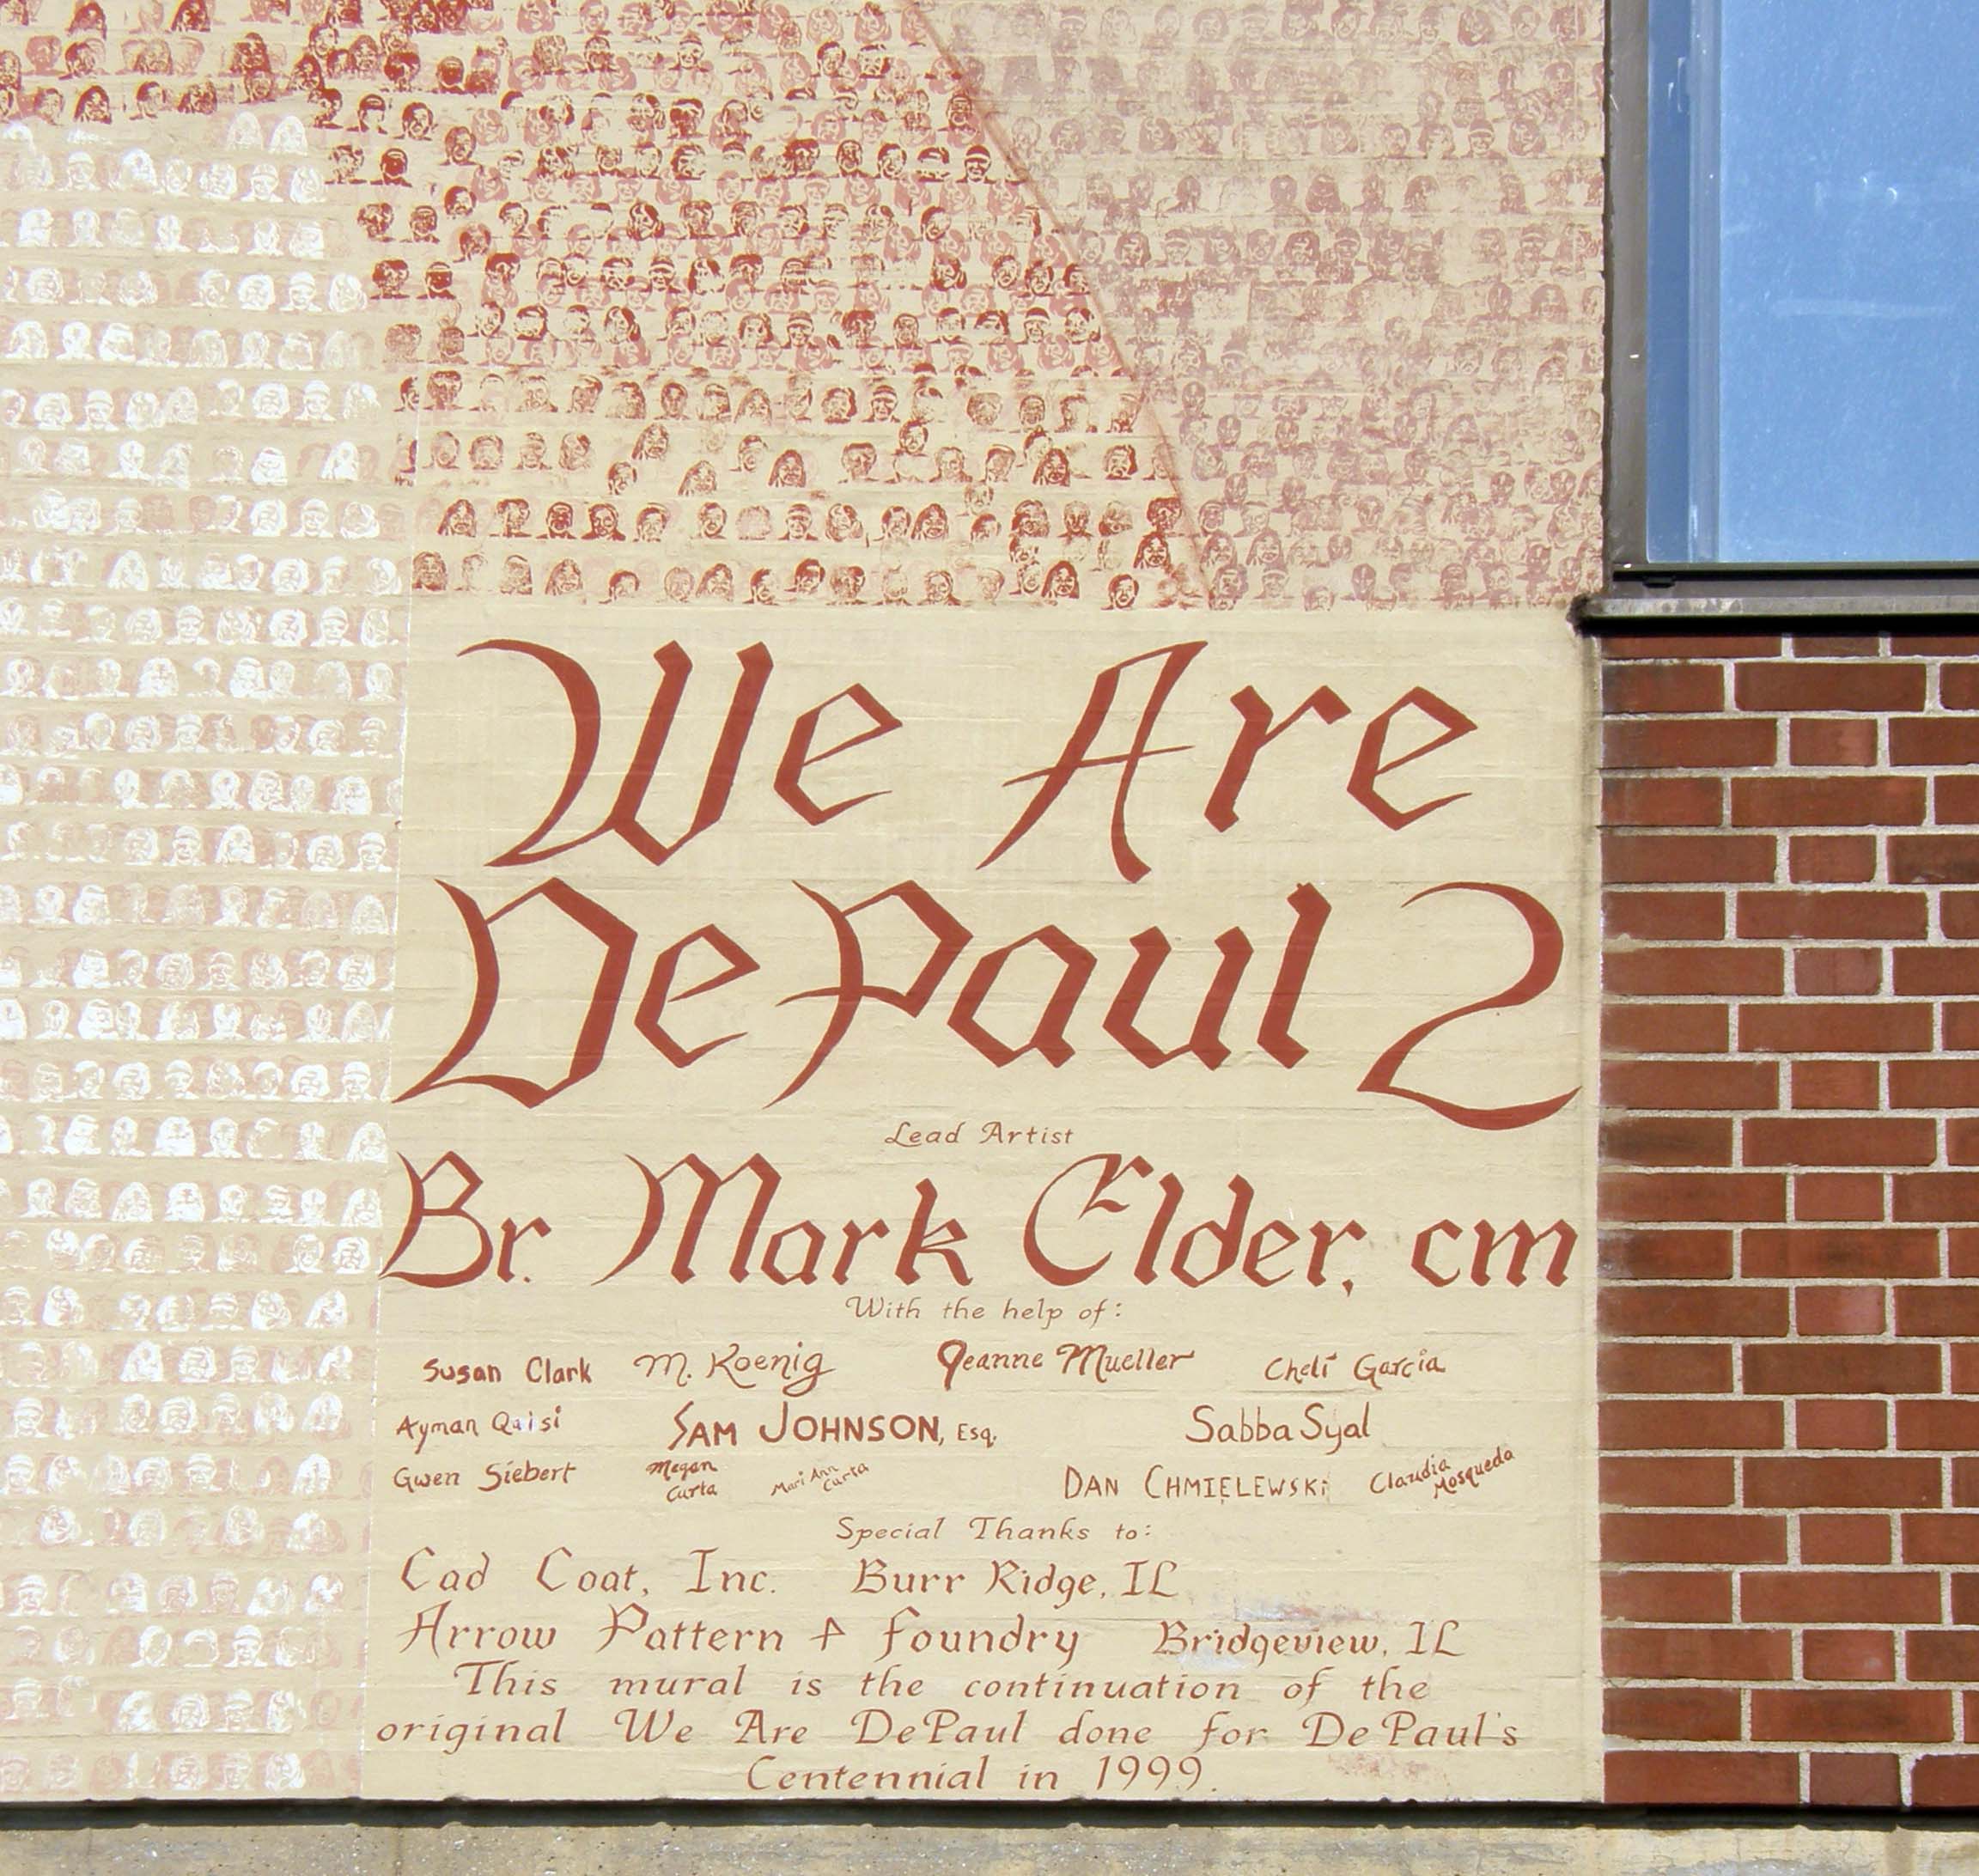 We Are
DePaul 2
Lead Artist
Br. Mark Elder, cm
With the help of:
Susan Clark M. Koenig Jeanne Mueller Cheli Garcia
Ayman Qaisi SAM JOHNSON, Esq. Sabba Syal
Gwen Siebert Megan Curta Mari Ann Curta DAN CHMIELEWSKi Claudia Mosqueda
Special Thanks to:
Cad Coat, Inc. Burr Ridge, IL
Arrow Pattern + Foundry Bridgeview, IL
This mural is the continuation of the
original We Are DePaul done for DePaul's
Centennial in 1999.